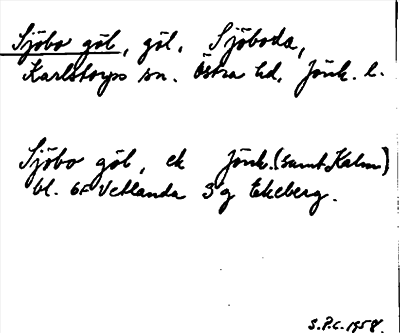 Sjöbo göl, göl, Sjöboda,
Karlstorps sn. Östra hd, Jönk. l.
Sjöbo göl, ek Jönk. (samt Kalm)
bl. 6F Vetlanda 3g Ekeberg.
S.P.C. 1958.